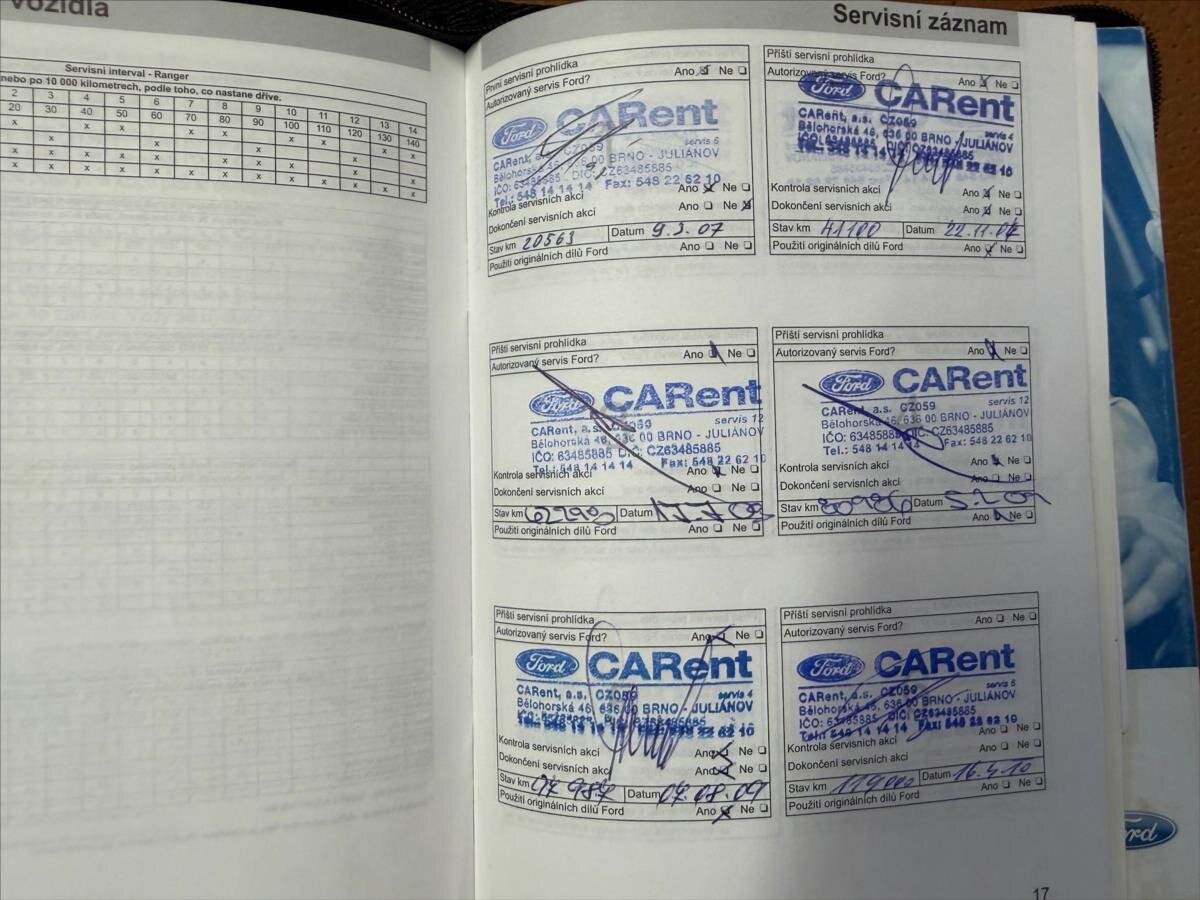 vozidla
Servisní interval - Ranger
nebo po 10 000 kilometrech, podle toho, co nastane dříve.
2 3 4 5 6 7 8 9 10 11 12 13 14
20 30 40 50 60 70 80 90 100 110 120 130 140
Servisní záznam
První servisní prohlídka
Autorizovaný servis Ford? Ano Ne
Ford CARent
servis 5
CARent, a.s. CZ059
Bělohorská 46, 636 00 BRNO - JULIÁNOV
IČO: 63485885 DIČ: CZ63485885
Tel.: 548 14 14 14 Fax: 548 22 62 10
Kontrola servisních akcí Ano Ne
Dokončení servisních akcí Ano Ne
Stav km 20563 Datum 9.3.07
Použití originálních dílů Ford Ano Ne
Příští servisní prohlídka
Autorizovaný servis Ford? Ano Ne
Ford CARent
servis 4
CARent, a.s. CZ059
Bělohorská 46, 636 00 BRNO - JULIÁNOV
IČO: 63485885 DIČ: CZ63485885
Tel.: 548 14 14 14 Fax: 548 22 62 10
Kontrola servisních akcí Ano Ne
Dokončení servisních akcí Ano Ne
Stav km 41100 Datum 22.11.07
Použití originálních dílů Ford Ano Ne
Příští servisní prohlídka
Autorizovaný servis Ford? Ano Ne
Ford CARent
servis 12
CARent, a.s. CZ059
Bělohorská 46, 636 00 BRNO - JULIÁNOV
IČO: 63485885 DIČ: CZ63485885
Tel.: 548 14 14 14 Fax: 548 22 62 10
Kontrola servisních akcí Ano Ne
Dokončení servisních akcí Ano Ne
Stav km Datum
Použití originálních dílů Ford Ano Ne
Příští servisní prohlídka
Autorizovaný servis Ford? Ano Ne
Ford CARent
servis 12
CARent, a.s. CZ059
Bělohorská 46, 636 00 BRNO - JULIÁNOV
IČO: 63485885 DIČ: CZ63485885
Tel.: 548 14 14 14 Fax: 548 22 62 10
Kontrola servisních akcí Ano Ne
Dokončení servisních akcí Ano Ne
Stav km 80986 Datum
Použití originálních dílů Ford Ano Ne
Příští servisní prohlídka
Autorizovaný servis Ford? Ano Ne
Ford CARent
servis 4
CARent, a.s. CZ059
Bělohorská 46, 636 00 BRNO - JULIÁNOV
IČO: 63485885 DIČ: CZ63485885
Tel.: 548 14 14 14 Fax: 548 22 62 10
Kontrola servisních akcí Ano Ne
Dokončení servisních akcí Ano Ne
Stav km 97 987 Datum 07.08.09
Použití originálních dílů Ford Ano Ne
Příští servisní prohlídka
Autorizovaný servis Ford? Ano Ne
Ford CARent
servis 5
CARent, a.s. CZ059
Bělohorská 46, 636 00 BRNO - JULIÁNOV
IČO: 63485885 DIČ: CZ63485885
Tel.: 548 14 14 14 Fax: 548 22 62 10
Kontrola servisních akcí Ano Ne
Dokončení servisních akcí Ano Ne
Stav km 119000 Datum 16.4.10
Použití originálních dílů Ford Ano Ne
17